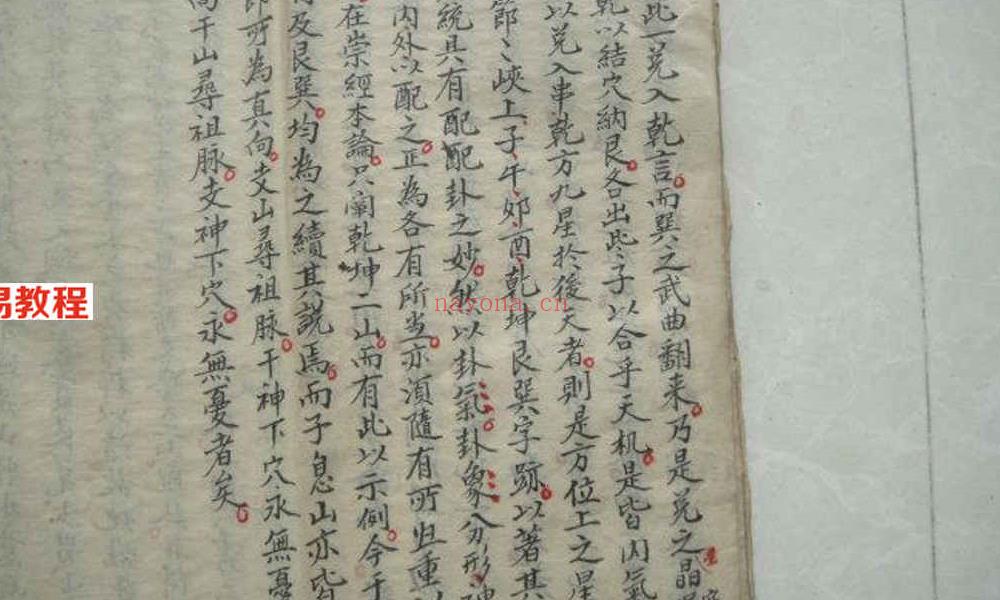 此一兑入乾言而巽之武曲翻来乃是兑之晶
乾以结穴納艮各出此子以合乎天机是皆内氣
以兑入串乾方九星於後天者則是方位上之星
節〻峽上子午卯酉乾坤艮巽字跡以著其
統具有配配卦之妙然以卦氣卦象分形
内外以配之正為各有所当亦須隨有所归重
在崇經本論只阐乾坤二山而有此以示例今子
及艮巽均為之續其説焉而子息山亦皆
即所為真向支山尋祖脉干神下穴永無憂
干山尋祖脉支神下穴永無憂者矣
易教程
nayona.cn